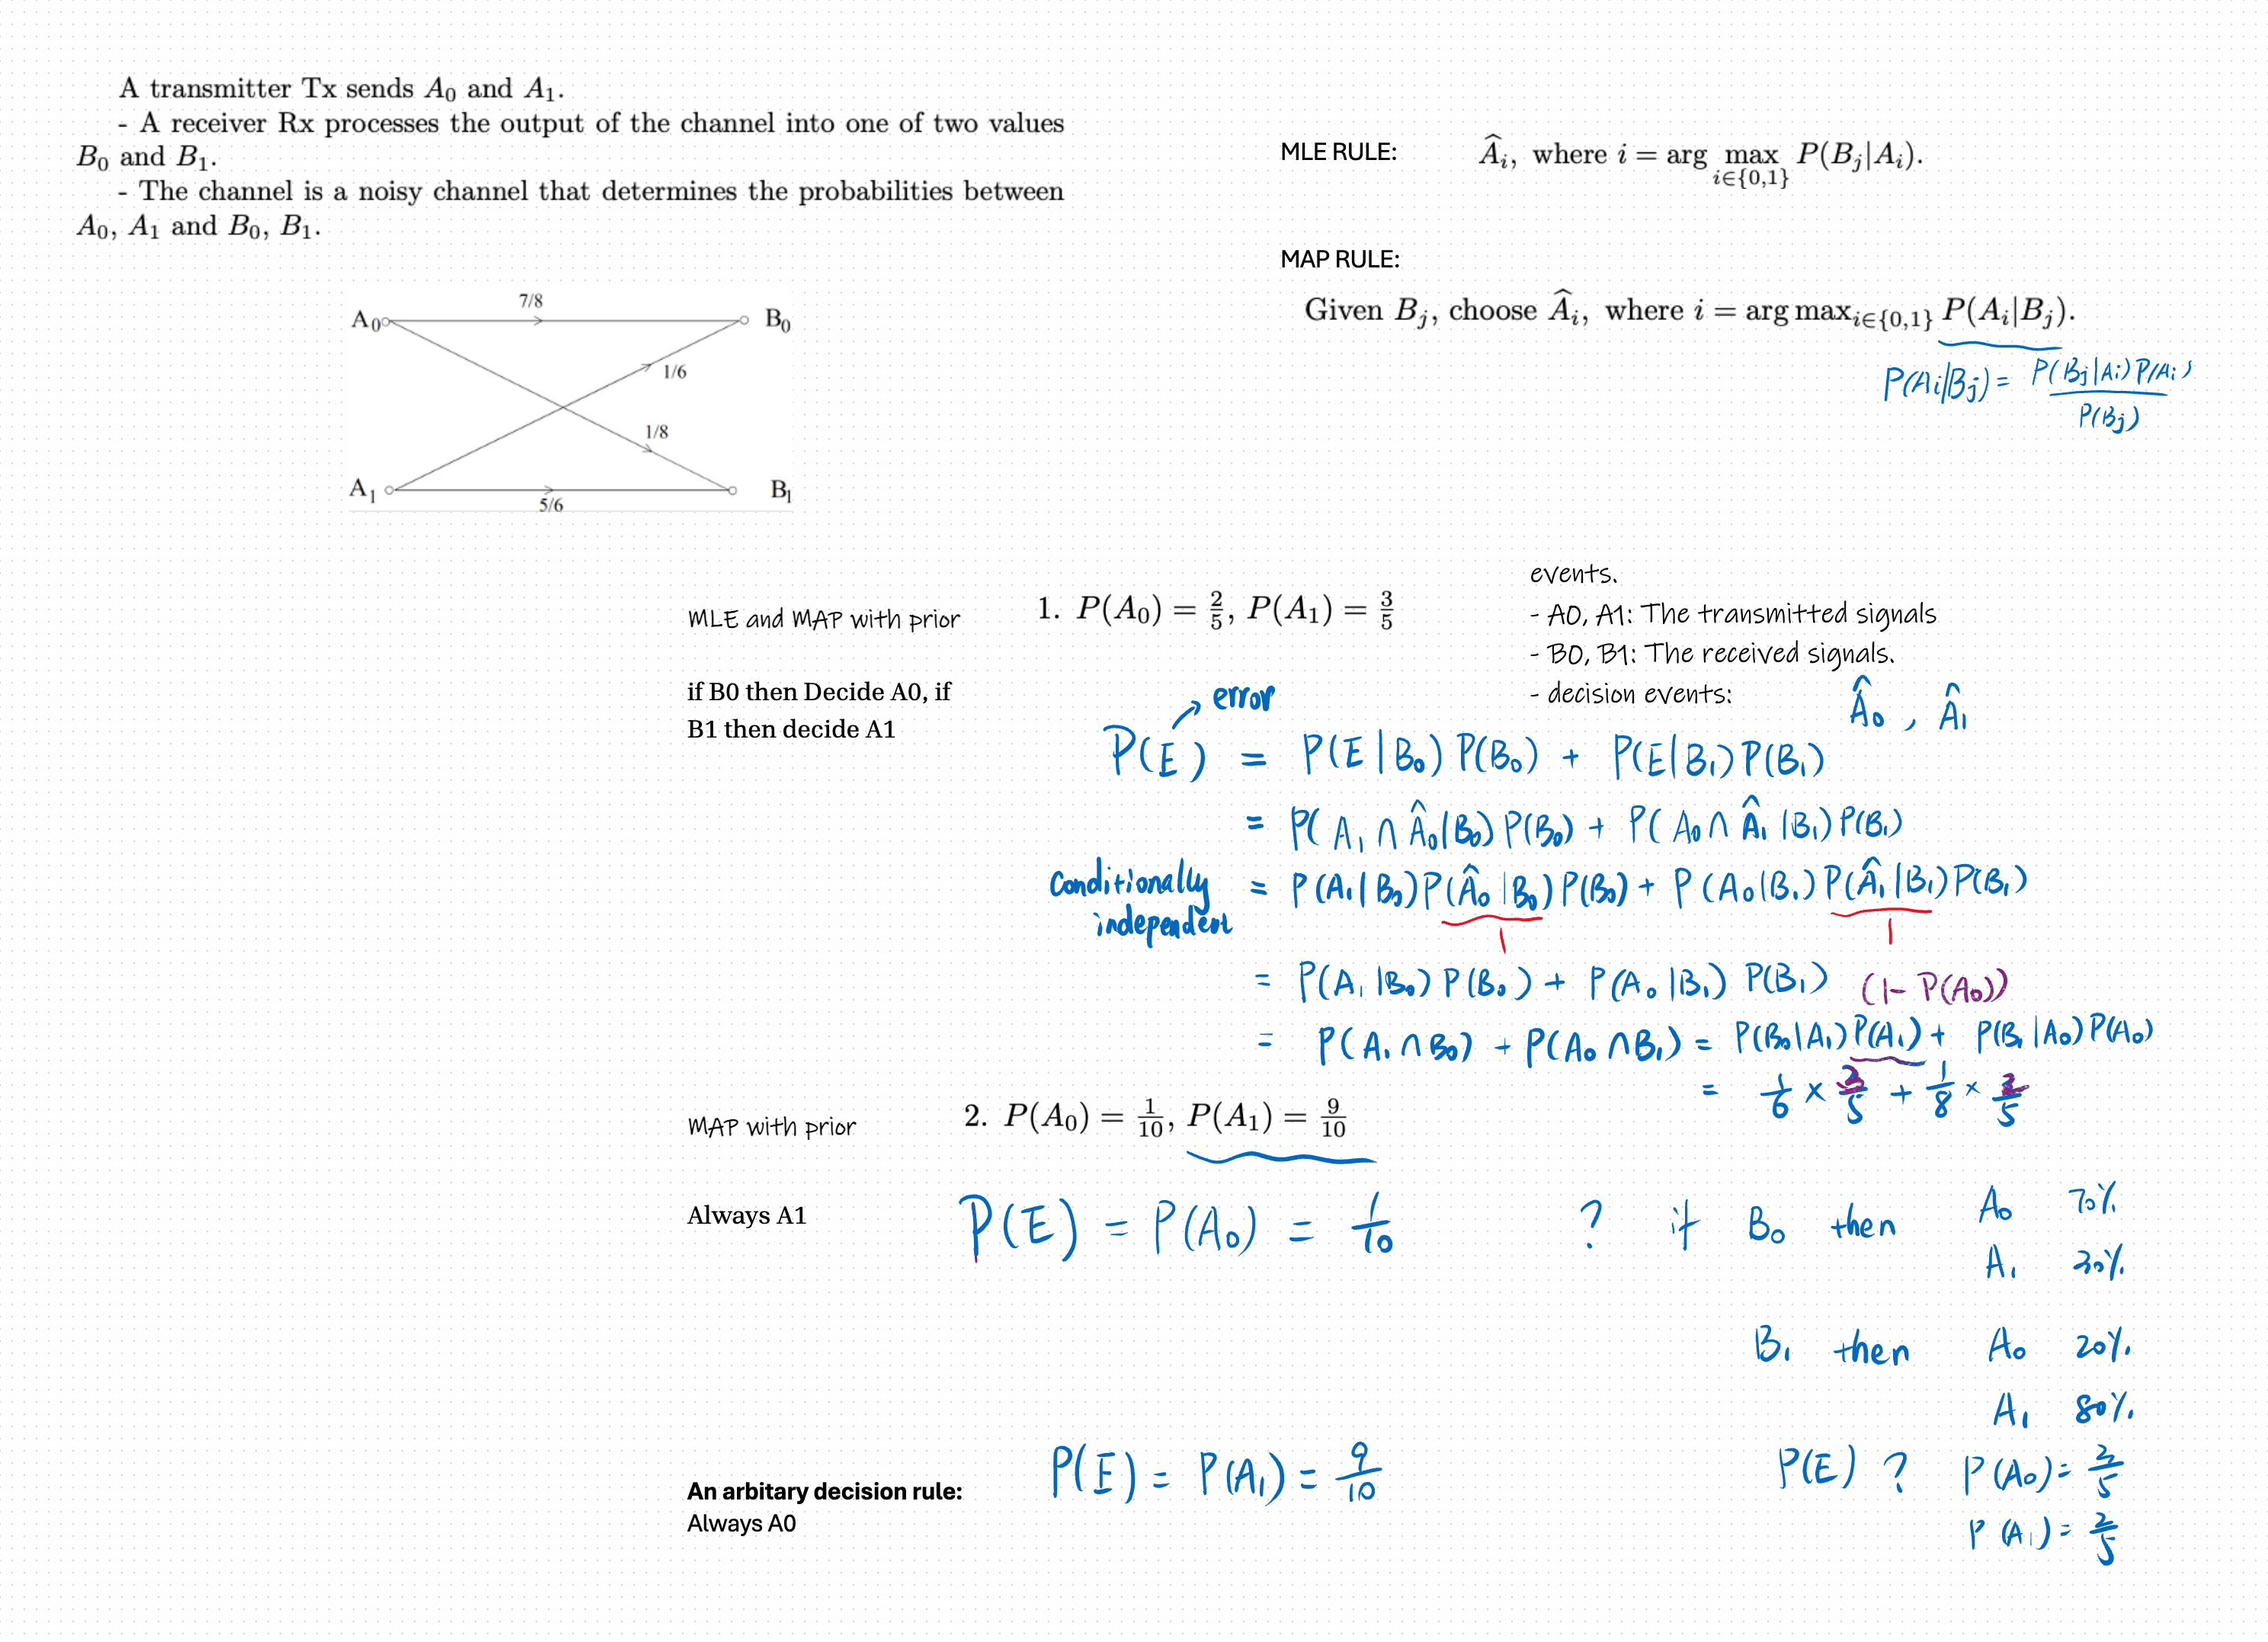 A transmitter Tx sends A₀ and A₁.
- A receiver Rx processes the output of the channel into one of two values
B₀ and B₁.
- The channel is a noisy channel that determines the probabilities between
A₀, A₁ and B₀, B₁.
7/8
A₀ B₀
1/6
1/8
A₁ B₁
5/6
MLE RULE: Âᵢ, where i = arg max P(Bⱼ|Aᵢ).
i∈{0,1}
MAP RULE:
Given Bⱼ, choose Âᵢ, where i = arg max_{i∈{0,1}} P(Aᵢ|Bⱼ).
P(Aᵢ|Bⱼ) = P(Bⱼ|Aᵢ)P(Aᵢ) / P(Bⱼ)
MLE and MAP with prior
1. P(A₀) = 2/5, P(A₁) = 3/5
if B0 then Decide A0, if
B1 then decide A1
events.
- A0, A1: The transmitted signals
- B0, B1: The received signals.
- decision events: Â₀ , Â₁
error
P(E) = P(E|B₀)P(B₀) + P(E|B₁)P(B₁)
= P(A₁ ∩ Â₀|B₀)P(B₀) + P(A₀ ∩ Â₁|B₁)P(B₁)
conditionally
independent
= P(A₁|B₀)P(Â₀|B₀)P(B₀) + P(A₀|B₁)P(Â₁|B₁)P(B₁)
1 1
= P(A₁|B₀)P(B₀) + P(A₀|B₁)P(B₁) (1- P(A₀))
= P(A₁∩B₀) + P(A₀∩B₁) = P(B₀|A₁)P(A₁) + P(B₁|A₀)P(A₀)
= 1/6 × 3/5 + 1/8 × 2/5
MAP with prior
2. P(A₀) = 1/10, P(A₁) = 9/10
Always A1
P(E) = P(A₀) = 1/10
? if B₀ then A₀ 70%
A₁ 30%
B₁ then A₀ 20%
A₁ 80%
P(E) ? P(A₀) = /5
P(A₁) = 2/5
An arbitary decision rule:
Always A0
P(E) = P(A₁) = 9/10